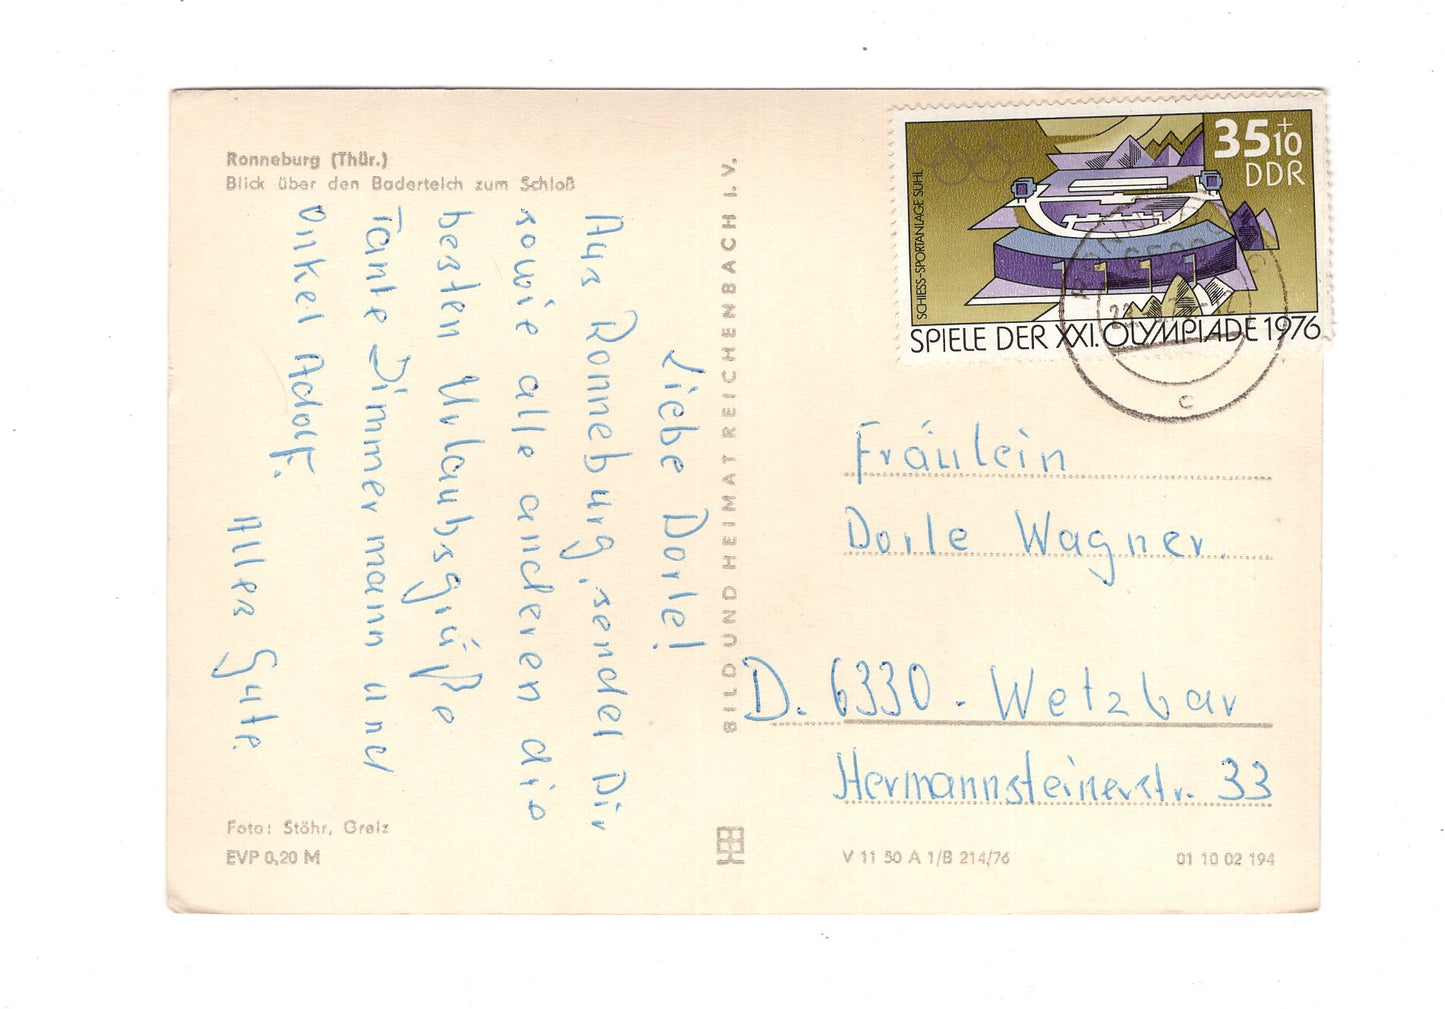 Ronneburg (Thür.)
Blick über den Baderteich zum Schloß
Liebe Dorle!
Aus Ronneburg, sendet Dir
sowie alle anderen die
besten Urlaubsgrüße
Tante Zimmermann und
Onkel Adolf.
Alles Gute.
Foto: Stöhr, Greiz
EVP 0,20 M
BILD UND HEIMAT REICHENBACH I. V.
35+10
DDR
SCHIESS-SPORTANLAGE SUHL
SPIELE DER XXI. OLYMPIADE 1976
c
Fräulein
Dorle Wagner.
D. 6330 - Wetzlar
Hermannsteinerstr. 33
V 11 50 A 1/B 214/76
01 10 02 194